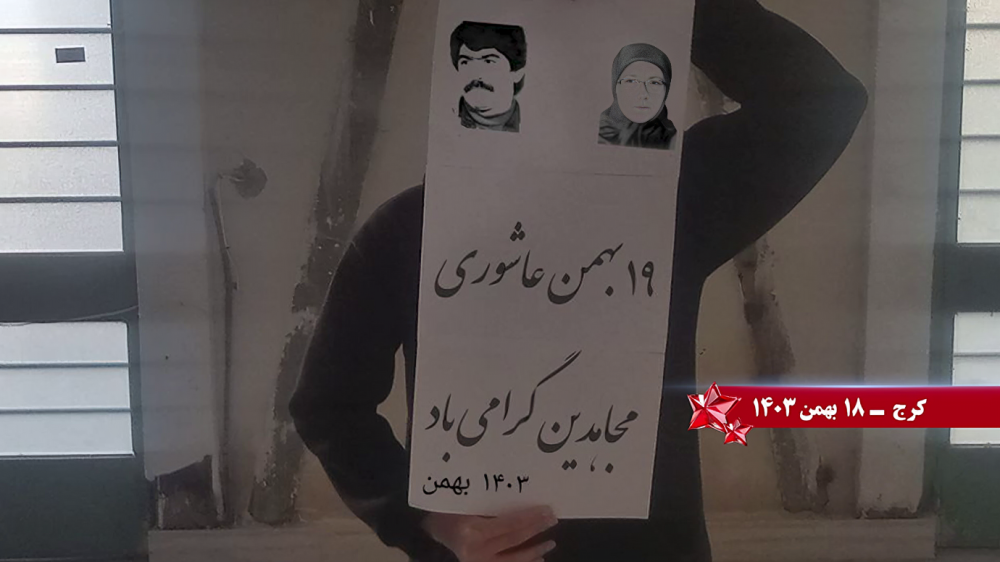 ۱۹ بهمن عاشورای
مجاهدین گرامی باد
۱۴۰۳ بهمن
کرج ــ ۱۸ بهمن ۱۴۰۳